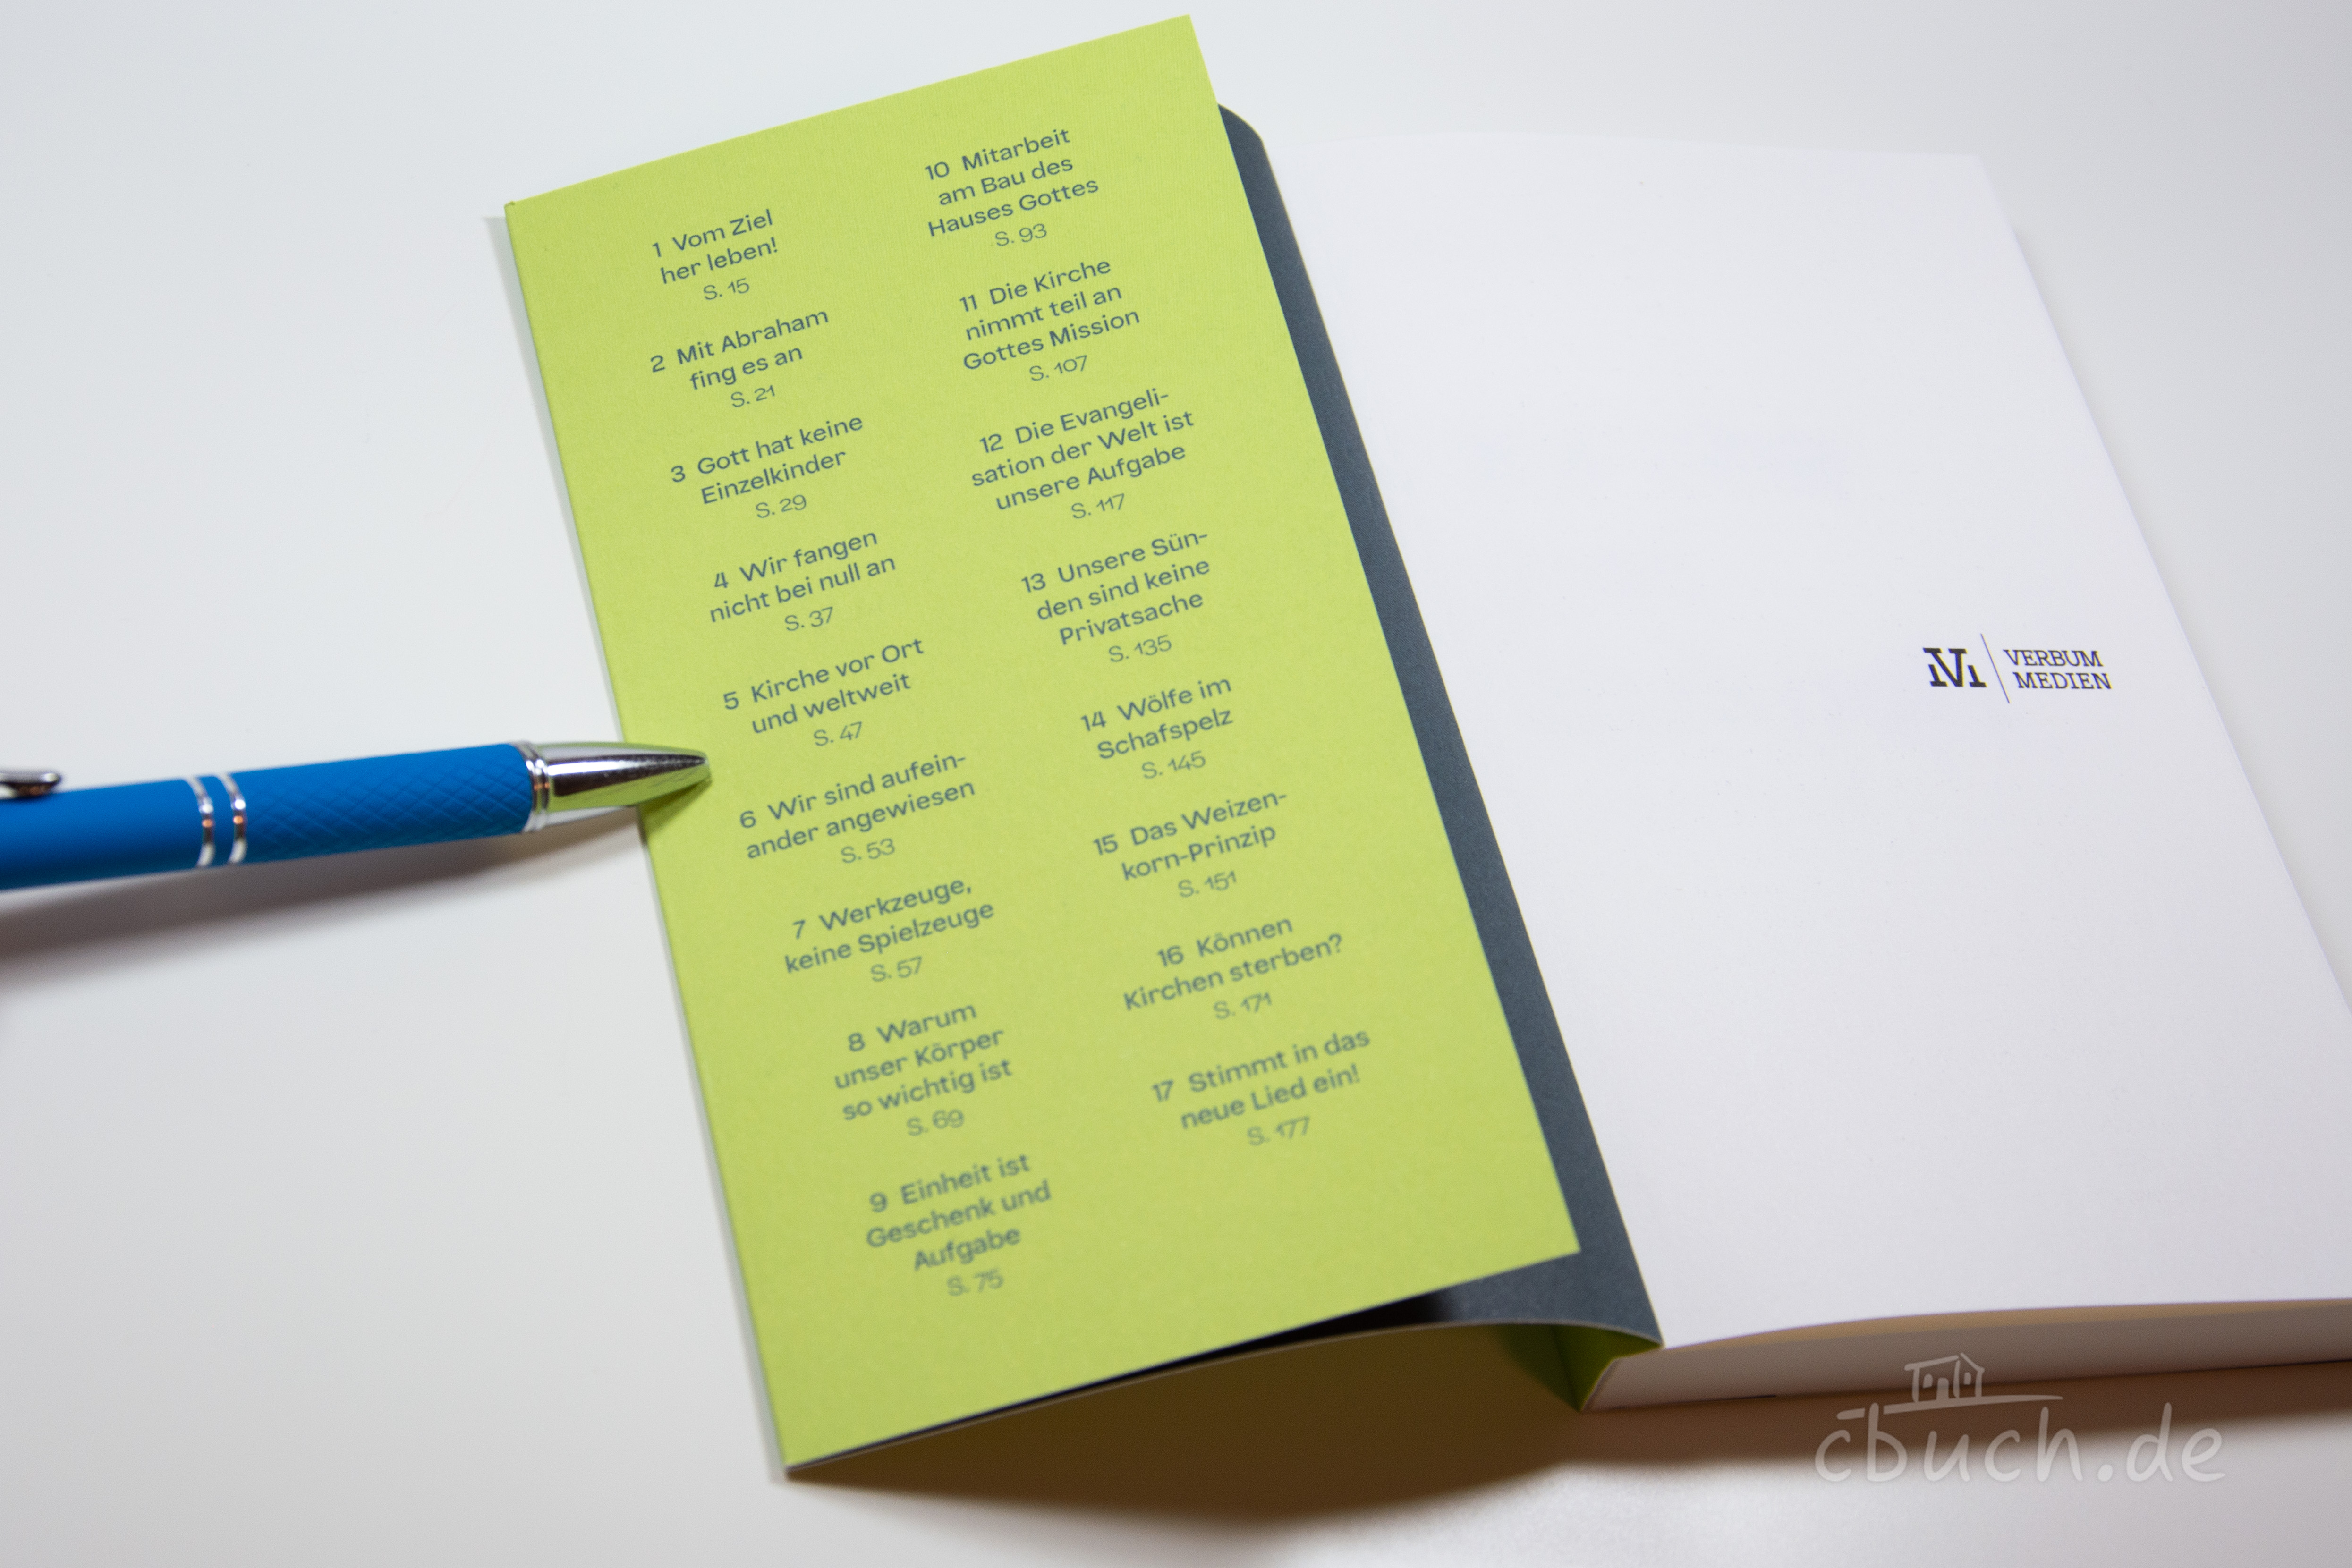 1 Vom Ziel
her leben!
S. 15
2 Mit Abraham
fing es an
S. 21
3 Gott hat keine
Einzelkinder
S. 29
4 Wir fangen
nicht bei null an
S. 37
5 Kirche vor Ort
und weltweit
S. 47
6 Wir sind aufein-
ander angewiesen
S. 53
7 Werkzeuge,
keine Spielzeuge
S. 57
8 Warum
unser Körper
so wichtig ist
S. 69
9 Einheit ist
Geschenk und
Aufgabe
S. 75
10 Mitarbeit
am Bau des
Hauses Gottes
S. 93
11 Die Kirche
nimmt teil an
Gottes Mission
S. 107
12 Die Evangeli-
sation der Welt ist
unsere Aufgabe
S. 117
13 Unsere Sün-
den sind keine
Privatsache
S. 135
14 Wölfe im
Schafspelz
S. 145
15 Das Weizen-
korn-Prinzip
S. 151
16 Können
Kirchen sterben?
S. 171
17 Stimmt in das
neue Lied ein!
S. 177
VM
VERBUM
MEDIEN
cbuch.de